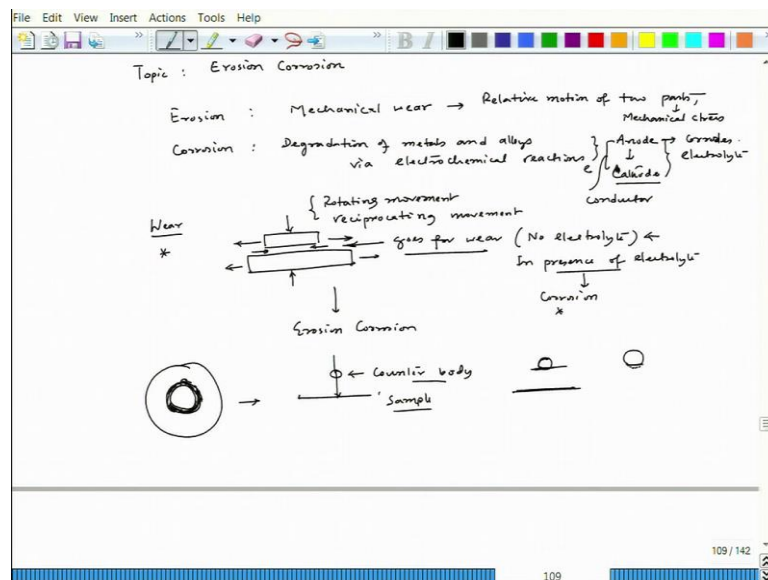 File Edit View Insert Actions Tools Help
B I
Topic : Erosion Corrosion
Erosion : Mechanical wear → Relative motion of two parts,
Mechanical stress
Corrosion : Degradation of metals and alloys
via electrochemical reactions
Anode → Corrodes.
Cathode
e
electrolyte
conductor
Rotating movement
reciprocating movement
Wear
*
goes for wear (No electrolyte) ←
In presence of electrolyte
Corrosion
*
Erosion Corrosion
← Counter body
Sample
109 / 142
109